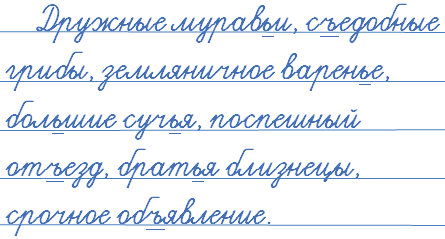 Дружные муравьи, съедобные
грибы, земляничное варенье,
большие сучья, поспешный
отъезд, братья близнецы,
срочное объявление.